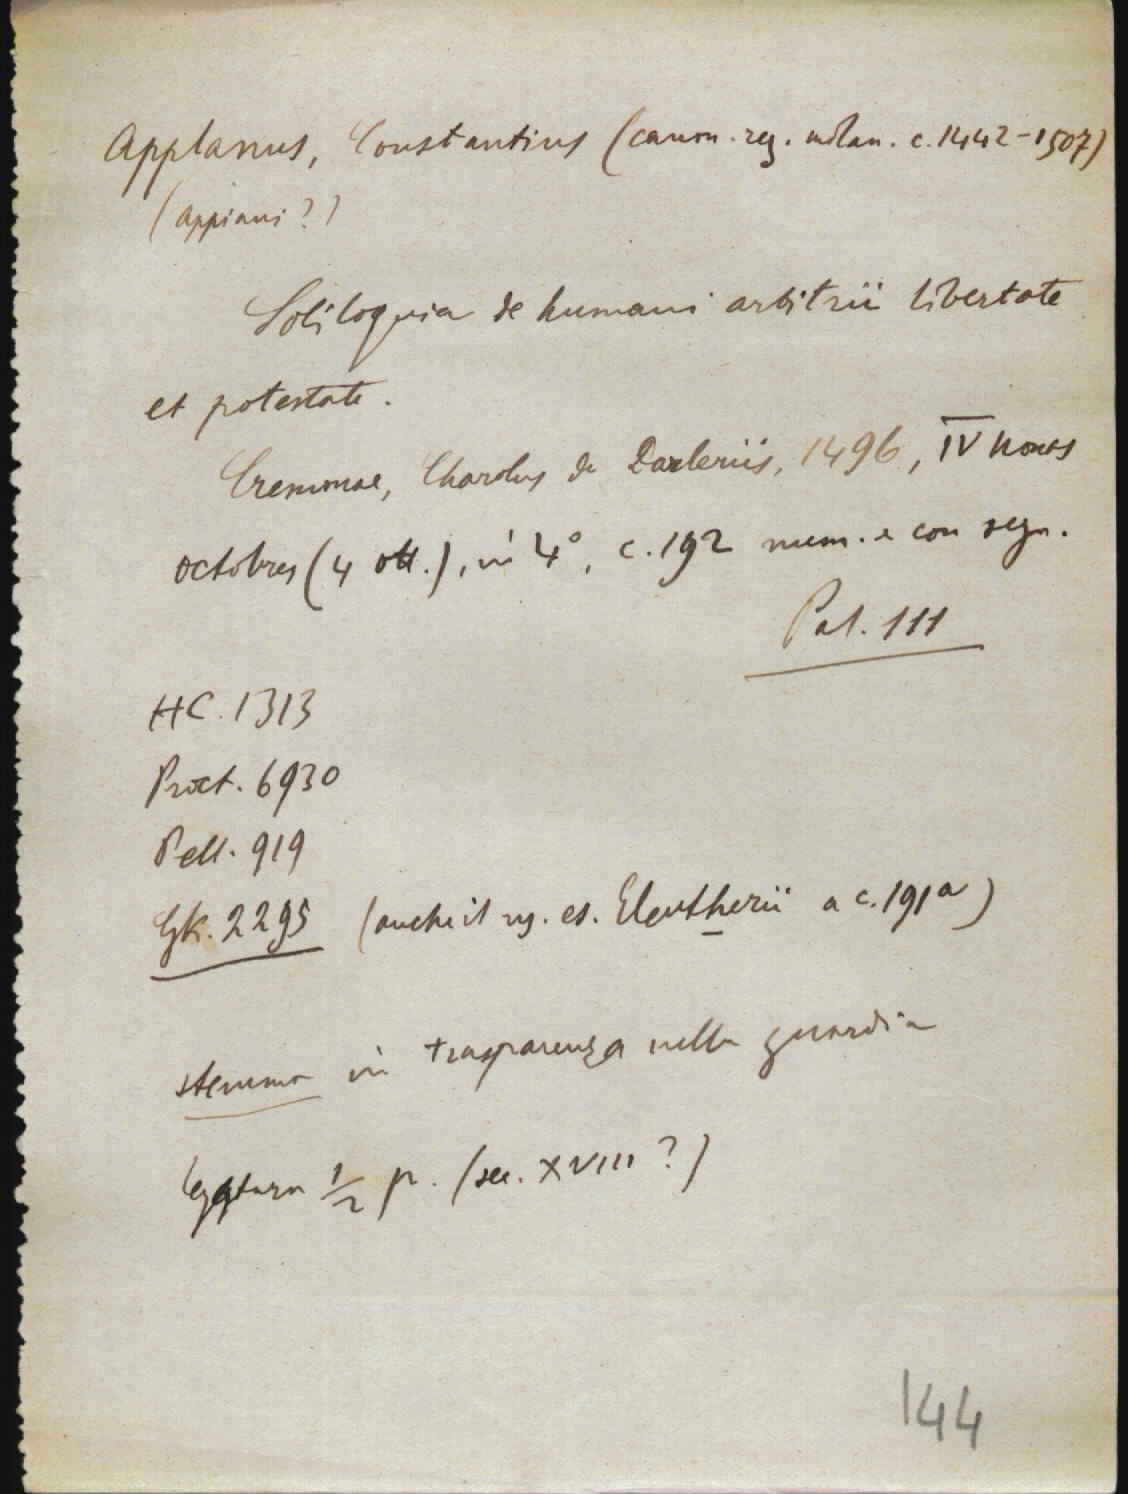 Applanus, Constantius (canon. reg. milan. c. 1442-1507)
(Appiani?)
Soliloquia de humani arbitrii libertate
et potestate.
Cremonae, Charolus de Darleriis, 1496, IV nonas
octobres (4 ott.), in 4°, c. 192 num. e con segn.
Pal. 111
HC. 1313
Proct. 6930
Pell. 919
Gk. 2295 (anche il ns. es. Eleutherii a c. 191a)
stemma in trasparenza nella guardia
legatura 1/2 p. (sec. XVIII?)
144